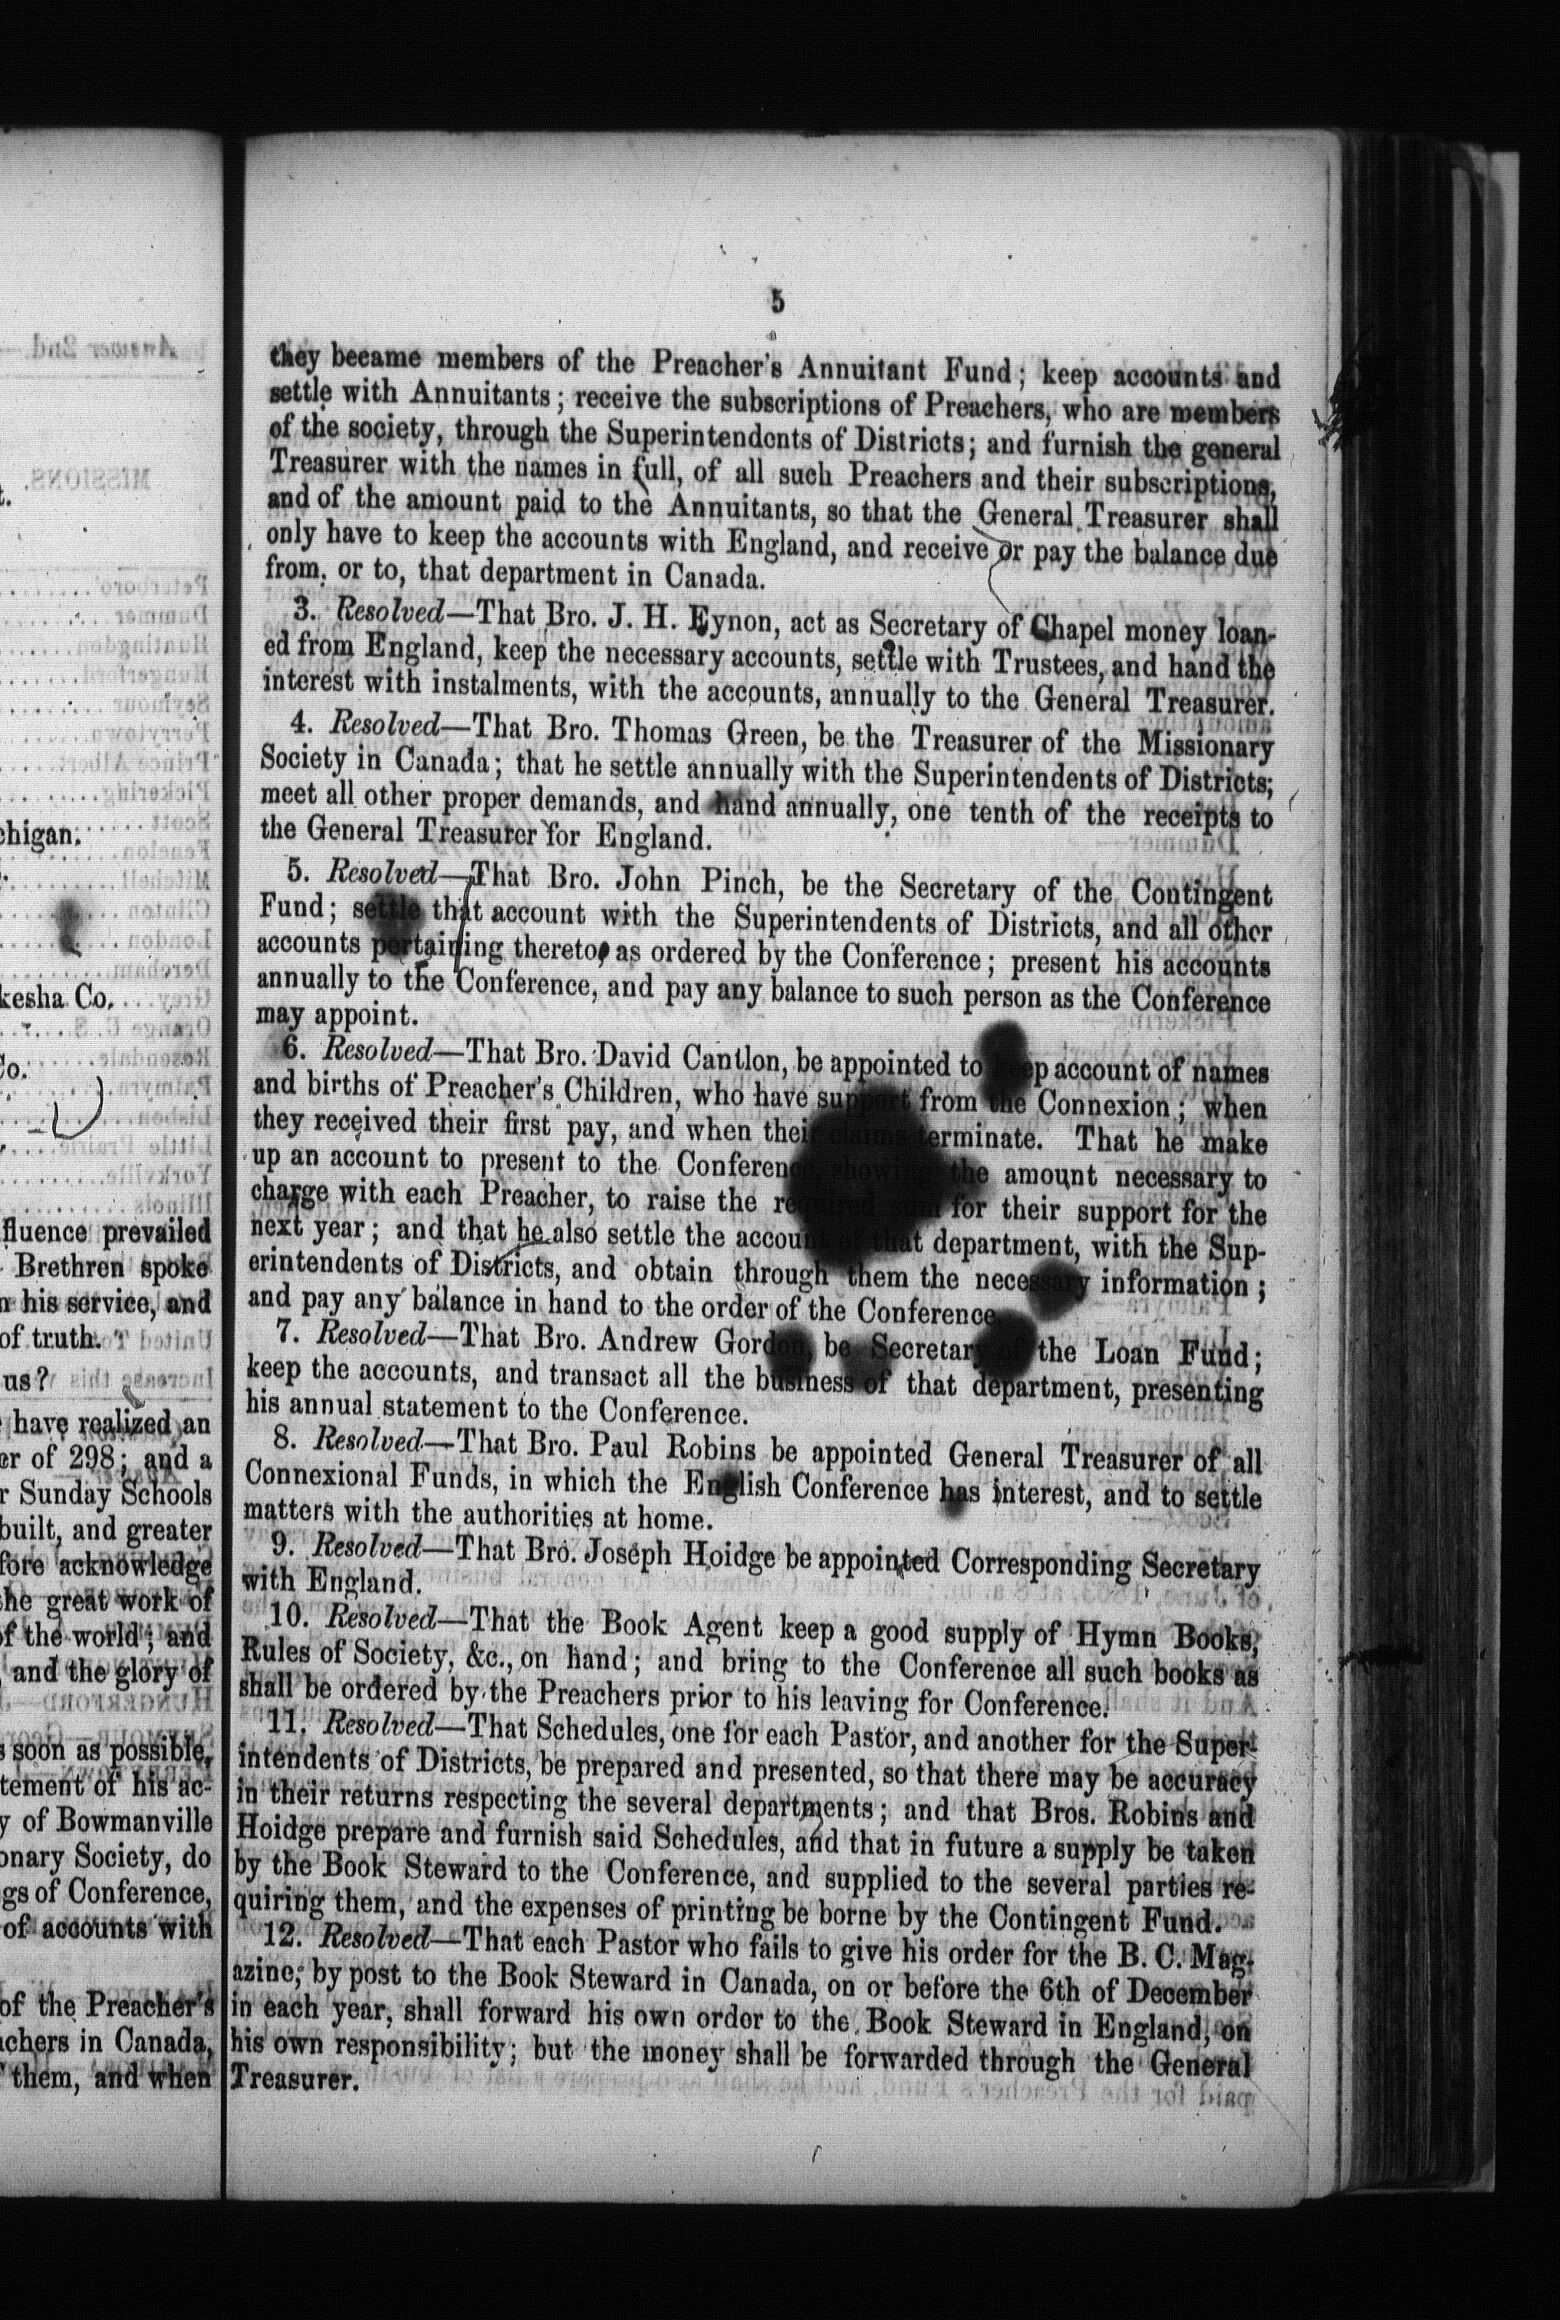 t.
chigan.
kesha Co.
Co.
fluence prevailed
Brethren spoke
n his service, and
of truth.
us?
have realized an
er of 298; and a
r Sunday Schools
built, and greater
fore acknowledge
the great work of
of the world; and
and the glory of
s soon as possible,
tement of his ac-
y of Bowmanville
onary Society, do
gs of Conference,
of accounts with
of the Preacher's
achers in Canada,
them, and when
5
they became members of the Preacher's Annuitant Fund; keep accounts and
settle with Annuitants; receive the subscriptions of Preachers, who are members
of the society, through the Superintendents of Districts; and furnish the general
Treasurer with the names in full, of all such Preachers and their subscriptions,
and of the amount paid to the Annuitants, so that the General Treasurer shall
only have to keep the accounts with England, and receive or pay the balance due
from, or to, that department in Canada.
3. Resolved—That Bro. J. H. Eynon, act as Secretary of Chapel money loan-
ed from England, keep the necessary accounts, settle with Trustees, and hand the
interest with instalments, with the accounts, annually to the General Treasurer.
4. Resolved—That Bro. Thomas Green, be the Treasurer of the Missionary
Society in Canada; that he settle annually with the Superintendents of Districts;
meet all other proper demands, and hand annually, one tenth of the receipts to
the General Treasurer for England.
5. Resolved—That Bro. John Pinch, be the Secretary of the Contingent
Fund; settle that account with the Superintendents of Districts, and all other
accounts pertaining thereto, as ordered by the Conference; present his accounts
annually to the Conference, and pay any balance to such person as the Conference
may appoint.
6. Resolved—That Bro. David Cantlon, be appointed to keep account of names
and births of Preacher's Children, who have support from the Connexion; when
they received their first pay, and when their claims terminate. That he make
up an account to present to the Conference, showing the amount necessary to
charge with each Preacher, to raise the required sum for their support for the
next year; and that he also settle the account of that department, with the Sup-
erintendents of Districts, and obtain through them the necessary information;
and pay any balance in hand to the order of the Conference
7. Resolved—That Bro. Andrew Gordon, be Secretary of the Loan Fund;
keep the accounts, and transact all the business of that department, presenting
his annual statement to the Conference.
8. Resolved—That Bro. Paul Robins be appointed General Treasurer of all
Connexional Funds, in which the English Conference has interest, and to settle
matters with the authorities at home.
9. Resolved—That Bro. Joseph Hoidge be appointed Corresponding Secretary
with England.
10. Resolved—That the Book Agent keep a good supply of Hymn Books,
Rules of Society, &c., on hand; and bring to the Conference all such books as
shall be ordered by the Preachers prior to his leaving for Conference.
11. Resolved—That Schedules, one for each Pastor, and another for the Super-
intendents of Districts, be prepared and presented, so that there may be accuracy
in their returns respecting the several departments; and that Bros. Robins and
Hoidge prepare and furnish said Schedules, and that in future a supply be taken
by the Book Steward to the Conference, and supplied to the several parties re-
quiring them, and the expenses of printing be borne by the Contingent Fund.
12. Resolved—That each Pastor who fails to give his order for the B. C. Mag-
azine, by post to the Book Steward in Canada, on or before the 6th of December
in each year, shall forward his own order to the Book Steward in England, on
his own responsibility; but the money shall be forwarded through the General
Treasurer.